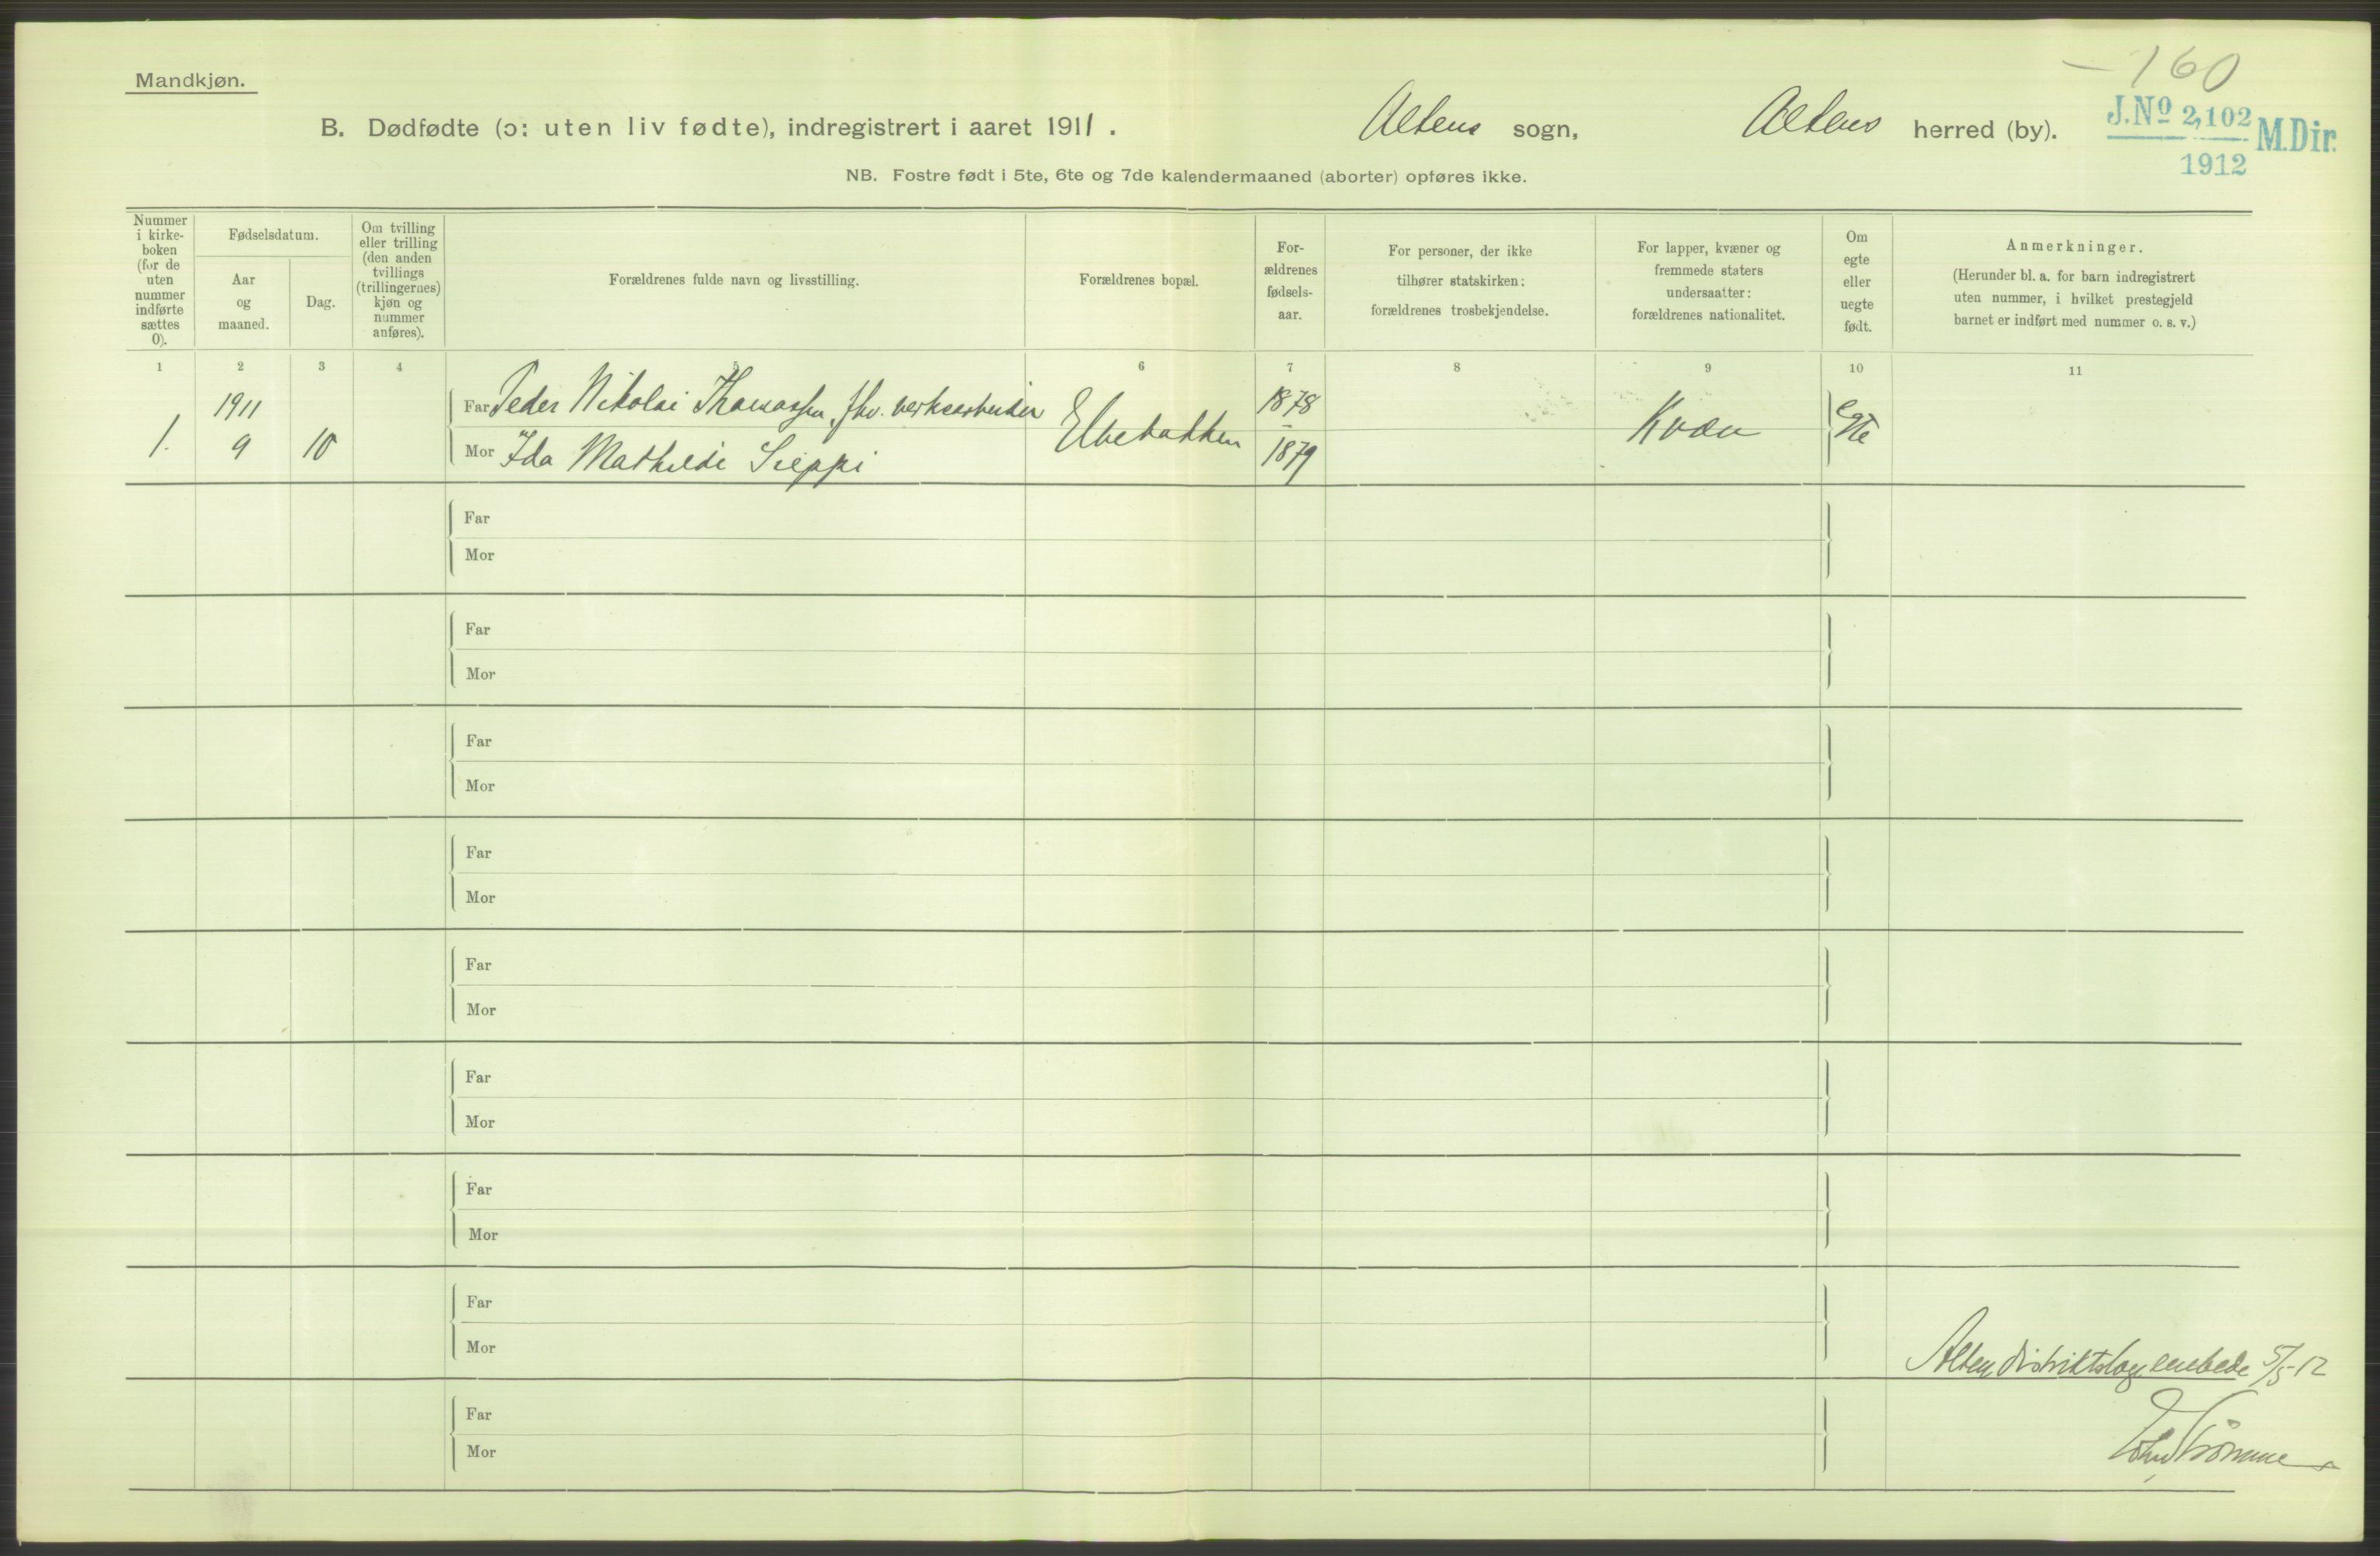 160
Mandkjøn.
B. Dødfødte (ɔ: uten liv fødte), indregistrert i aaret 1911. Altens sogn, Altens herred (by).
J.No 2,102 M.Dir.
1912
NB. Fostre født i 5te, 6te og 7de kalendermaaned (aborter) opføres ikke.
Nummer i kirke-
boken
(for de
uten
nummer
indførte
sættes
0).
Fødselsdatum.
Aar
og
maaned.
Dag.
Om tvilling
eller trilling
(den anden
tvillings
(trillingernes)
kjøn og
nummer
anføres).
Forældrenes fulde navn og livsstilling.
Forældrenes bopæl.
For-
ældrenes
fødsels-
aar.
For personer, der ikke
tilhører statskirken:
forældrenes trosbekjendelse.
For lapper, kvæner og
fremmede staters
undersaatter:
forældrenes nationalitet.
Om
egte
eller
uegte
født.
Anmerkninger.
(Herunder bl. a. for barn indregistrert
uten nummer, i hvilket prestegjeld
barnet er indført med nummer o. s. v.)
1 2 3 4 5 6 7 8 9 10 11
1911
1. 9 10
Far Peder Nikolai Thomassen, fhv. verksarbeider
Mor Ida Mathilde Sieppi
Elvebakken
1878
1879
Kvæn
egte
Far
Mor
Far
Mor
Far
Mor
Far
Mor
Far
Mor
Far
Mor
Far
Mor
Far
Mor
Far
Mor
Alten distriktslægeembede 5/5-12